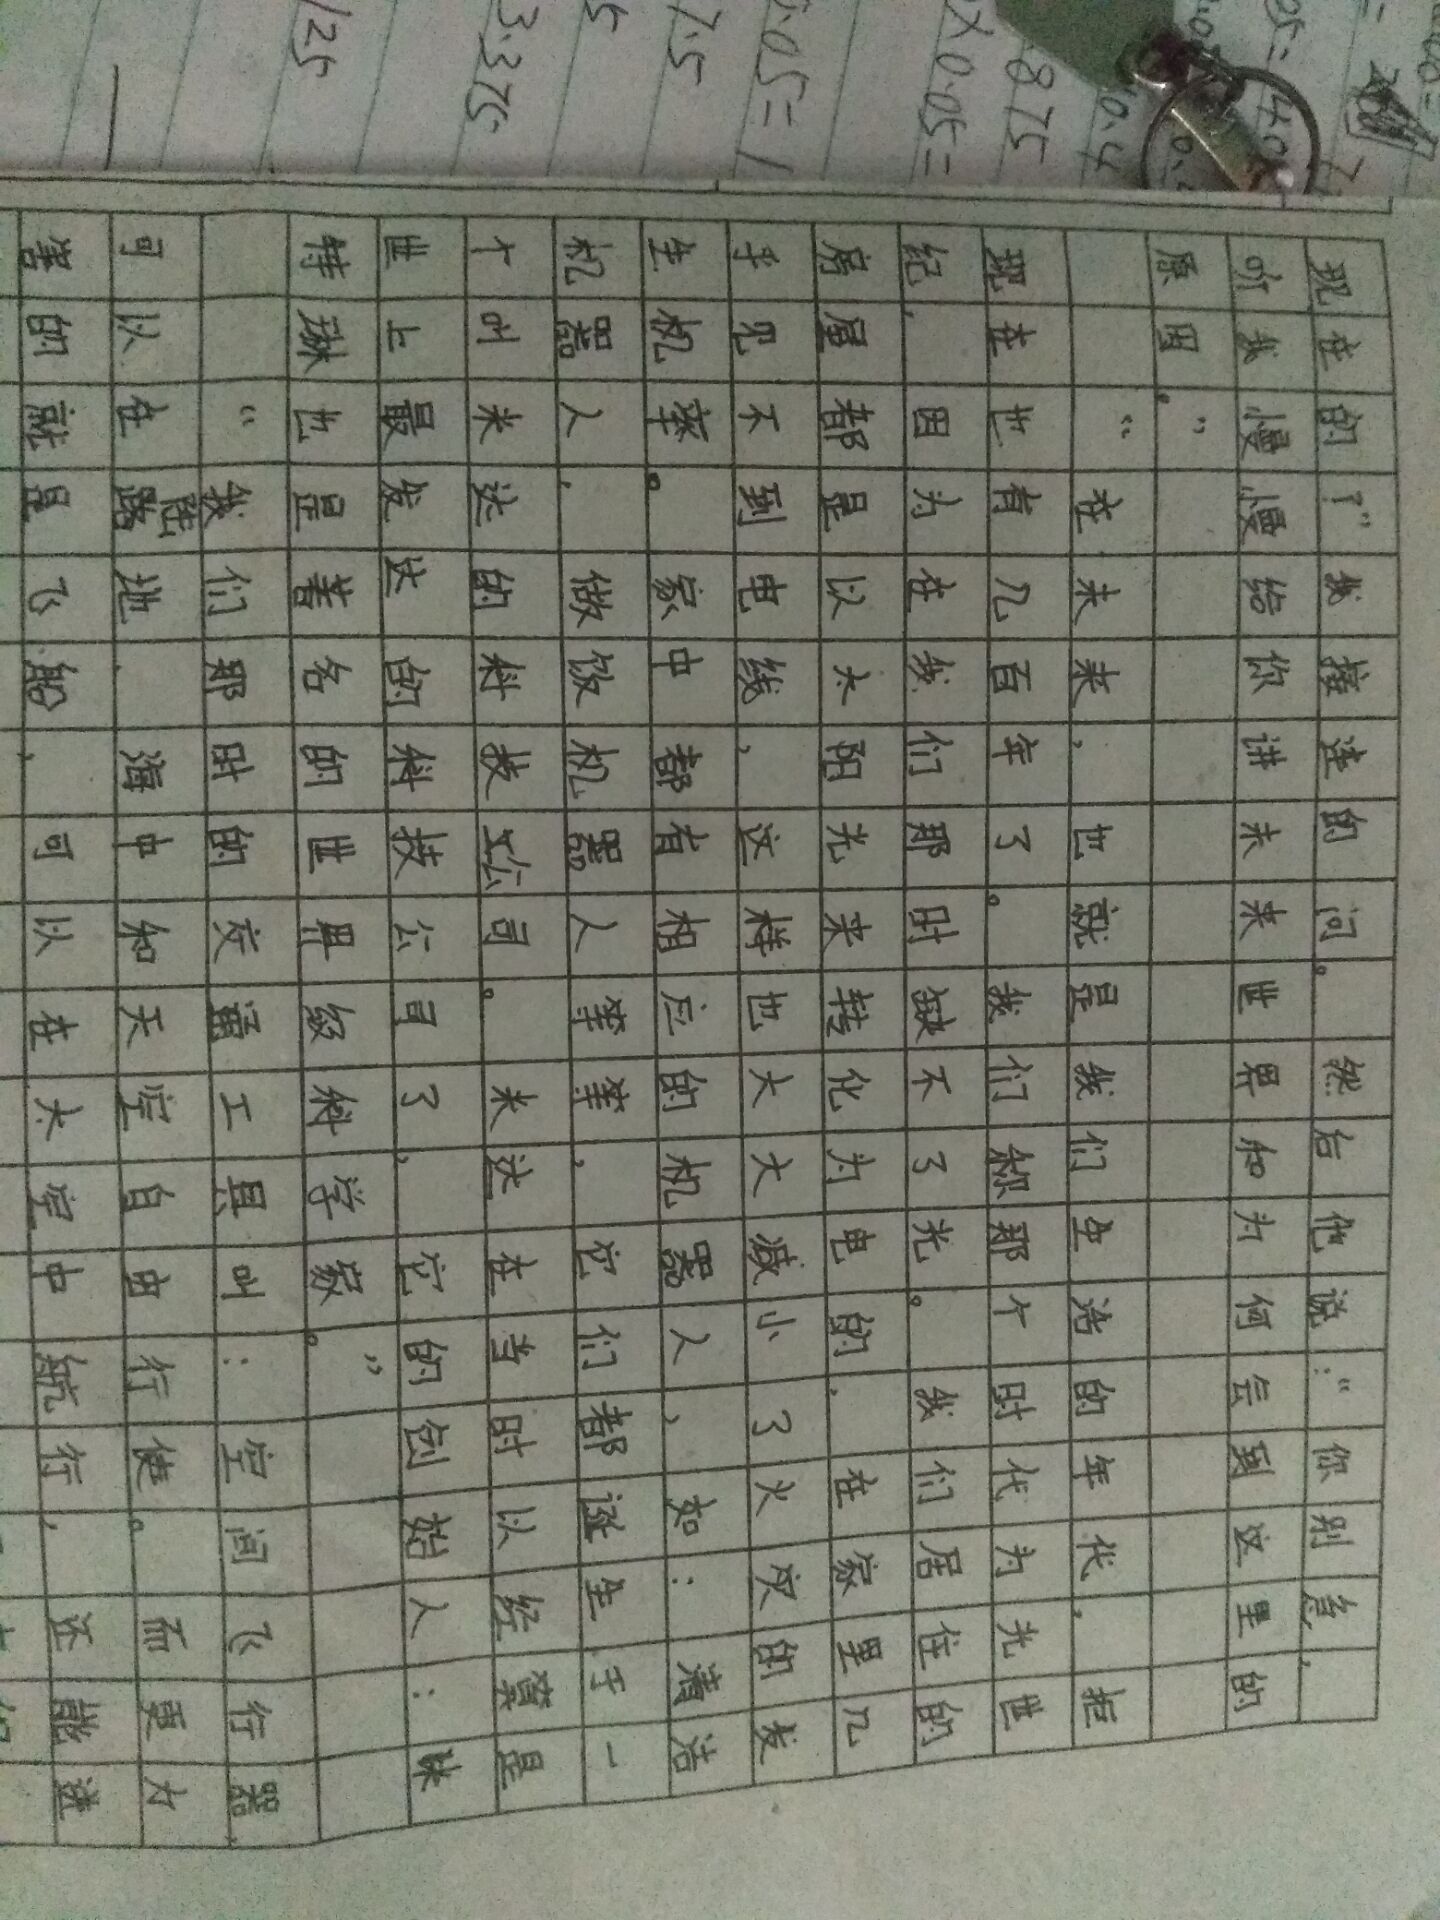 现在的？”我接连的问。然后他说：“你别急，
听我慢慢给你讲未来世界和为何会到这里的
原因。”
“在未来，也就是我们生活的年代，距
现在也有几百年了。我们称那个时代为光世
纪，因为在我们那时缺不了光。我们居住的
房屋都是以太阳光来转化为电的，在家里几
乎见不到电线，这样也大大减小了火灾的发
生机率。家中都有相应的机器人，如：清洁
机器人，做饭机器人等等，它们都诞生于一
个叫米达的科技公司。米达在当时以经算是
世上最发达的科技公司了，它的创始人：
特琳也是著名的世界级科学家。”
“我们那时的交通工具叫：空间飞行器，
可以在陆地、海中和天空自由行使。而更力
害的就是飞船，可以在太空中航行，还能进
3.375
7.5
5
125
875
0.4